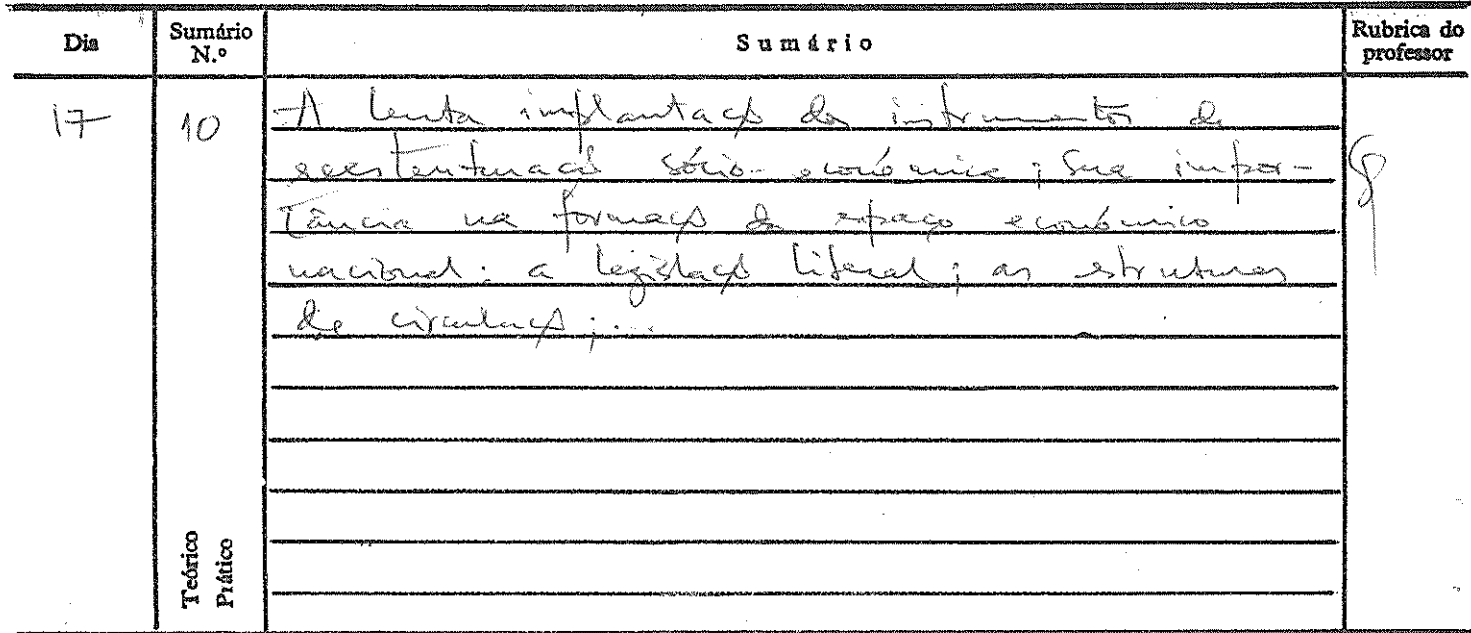 Dia Sumário N.º Sumário Rubrica do professor
17 10 A lenta implantação dos instrumentos de
reestruturação sócio-económica; sua impor-
tância na formação do espaço económico
nacional: a legislação liberal; as estruturas
de circulação;...
Teórico
Prático